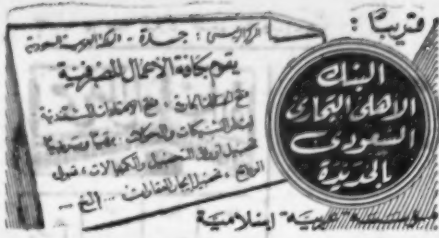 قريبًا :
البنك
الأهلي التجاري
السعودي
بالحديدة
المركز الرئيسي : جدة - المملكة العربية السعودية
يقوم بكافة الأعمال المصرفية
فتح الاعتمادات المستندية
الشيكات والحوالات
تحصيل أوراق التحصيل والكمبيالات ، قبول
الودائع ، تحصيل إيجار العقارات ... إلخ
مؤسسة عربية إسلامية